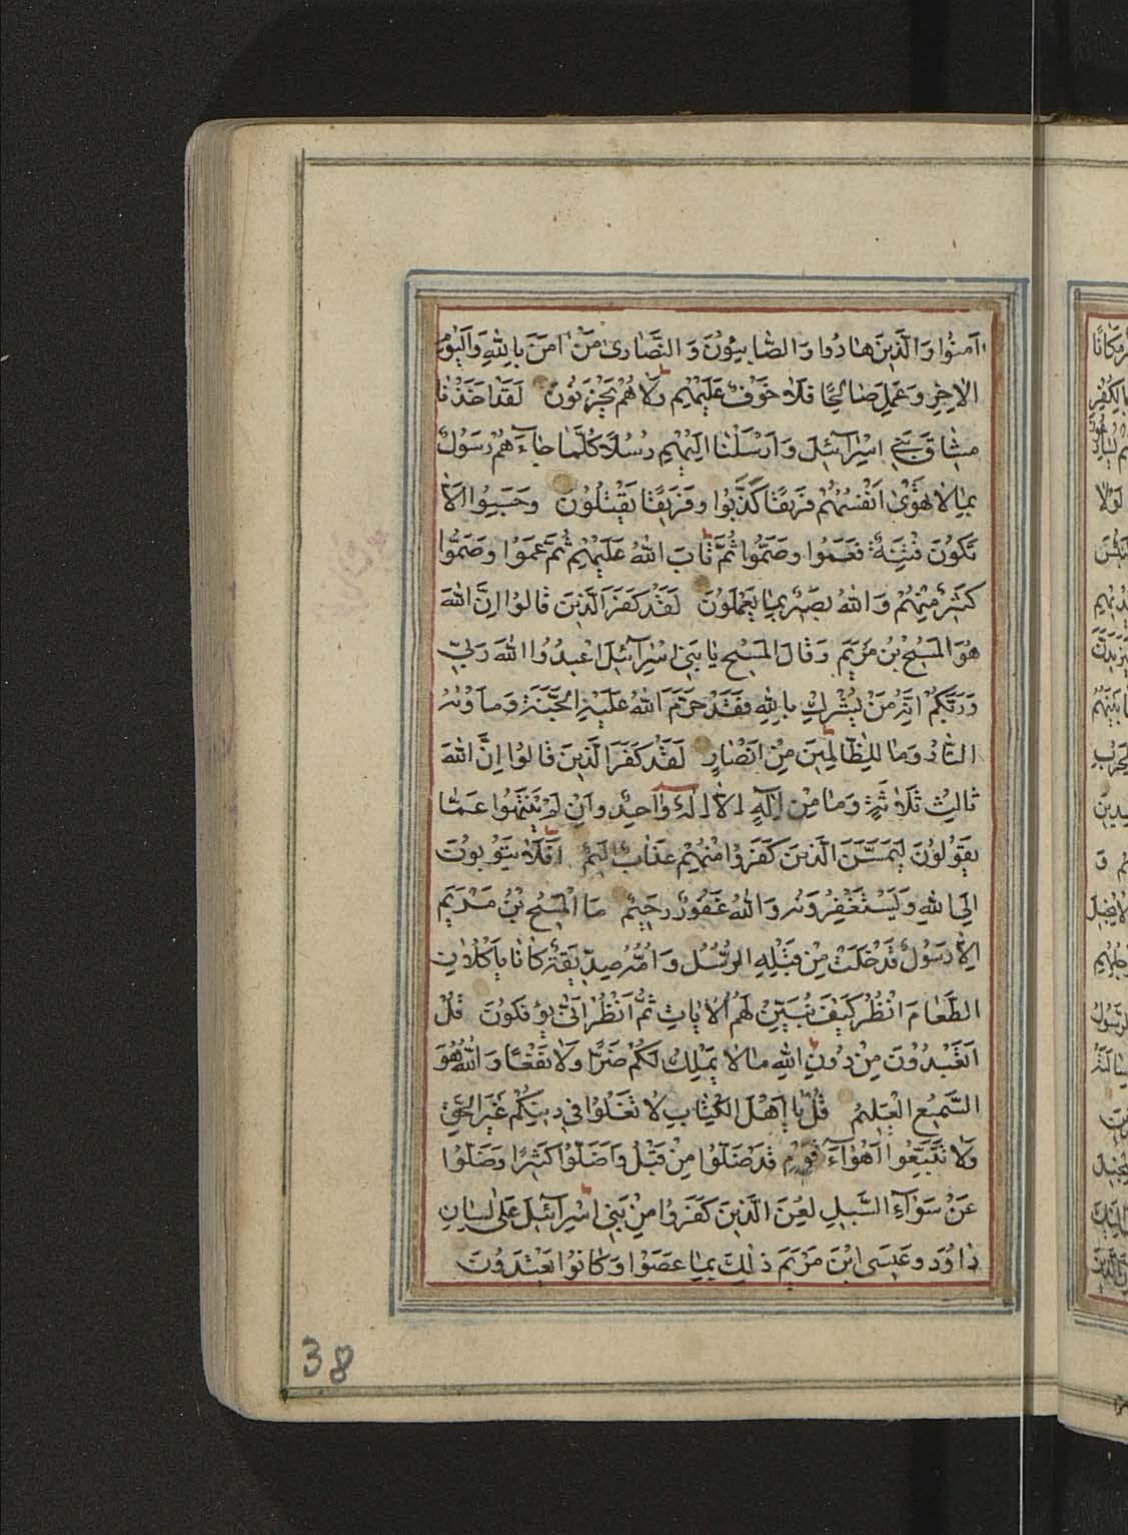 اٰمَنُوا وَالَّذِينَ هَادُوا وَالصَّابِئُونَ وَالنَّصَارىٰ مَنْ اٰمَنَ بِاللّٰهِ وَالْيَوْمِ
الْاٰخِرِ وَعَمِلَ صَالِحًا فَلَا خَوْفٌ عَلَيْهِمْ وَلَا هُمْ يَحْزَنُونَ لَقَدْ اَخَذْنَا
مِيثَاقَ بَنِي اِسْرَآئِيلَ وَاَرْسَلْنَا اِلَيْهِمْ رُسُلًا كُلَّمَا جَاءَهُمْ رَسُولٌ
بِمَا لَا تَهْوىٰ اَنْفُسُهُمْ فَرِيقًا كَذَّبُوا وَفَرِيقًا يَقْتُلُونَ وَحَسِبُوا اَلَّا
تَكُونَ فِتْنَةٌ فَعَمُوا وَصَمُّوا ثُمَّ تَابَ اللّٰهُ عَلَيْهِمْ ثُمَّ عَمُوا وَصَمُّوا
كَثِيرٌ مِنْهُمْ وَاللّٰهُ بَصِيرٌ بِمَا يَعْمَلُونَ لَقَدْ كَفَرَ الَّذِينَ قَالُوا اِنَّ اللّٰهَ
هُوَ الْمَسِيحُ بْنُ مَرْيَمَ وَقَالَ الْمَسِيحُ يَا بَنِي اِسْرَآئِيلَ اعْبُدُوا اللّٰهَ رَبِّي
وَرَبَّكُمْ اِنَّهُ مَنْ يُشْرِكْ بِاللّٰهِ فَقَدْ حَرَّمَ اللّٰهُ عَلَيْهِ الْجَنَّةَ وَمَاْوٰيهُ
النَّارُ وَمَا لِلظَّالِمِينَ مِنْ اَنْصَارٍ لَقَدْ كَفَرَ الَّذِينَ قَالُوا اِنَّ اللّٰهَ
ثَالِثُ ثَلَاثَةٍ وَمَا مِنْ اِلٰهٍ اِلَّا اِلٰهٌ وَاحِدٌ وَاِنْ لَمْ يَنْتَهُوا عَمَّا
يَقُولُونَ لَيَمَسَّنَّ الَّذِينَ كَفَرُوا مِنْهُمْ عَذَابٌ اَلِيمٌ اَفَلَا يَتُوبُونَ
اِلَى اللّٰهِ وَيَسْتَغْفِرُونَهُ وَاللّٰهُ غَفُورٌ رَحِيمٌ مَا الْمَسِيحُ بْنُ مَرْيَمَ
اِلَّا رَسُولٌ قَدْ خَلَتْ مِنْ قَبْلِهِ الرُّسُلُ وَاُمُّهُ صِدِّيقَةٌ كَانَا يَأْكُلَانِ
الطَّعَامَ انْظُرْ كَيْفَ نُبَيِّنُ لَهُمُ الْاٰيَاتِ ثُمَّ انْظُرْ اَنّٰى يُؤْفَكُونَ قُلْ
اَتَعْبُدُونَ مِنْ دُونِ اللّٰهِ مَا لَا يَمْلِكُ لَكُمْ ضَرًّا وَلَا نَفْعًا وَاللّٰهُ هُوَ
السَّمِيعُ الْعَلِيمُ قُلْ يَا اَهْلَ الْكِتَابِ لَا تَغْلُوا فِي دِينِكُمْ غَيْرَ الْحَقِّ
وَلَا تَتَّبِعُوا اَهْوَآءَ قَوْمٍ قَدْ ضَلُّوا مِنْ قَبْلُ وَاَضَلُّوا كَثِيرًا وَضَلُّوا
عَنْ سَوَآءِ السَّبِيلِ لُعِنَ الَّذِينَ كَفَرُوا مِنْ بَنِي اِسْرَآئِيلَ عَلىٰ لِسَانِ
دَاوُدَ وَعِيسَى ابْنِ مَرْيَمَ ذٰلِكَ بِمَا عَصَوْا وَكَانُوا يَعْتَدُونَ
38